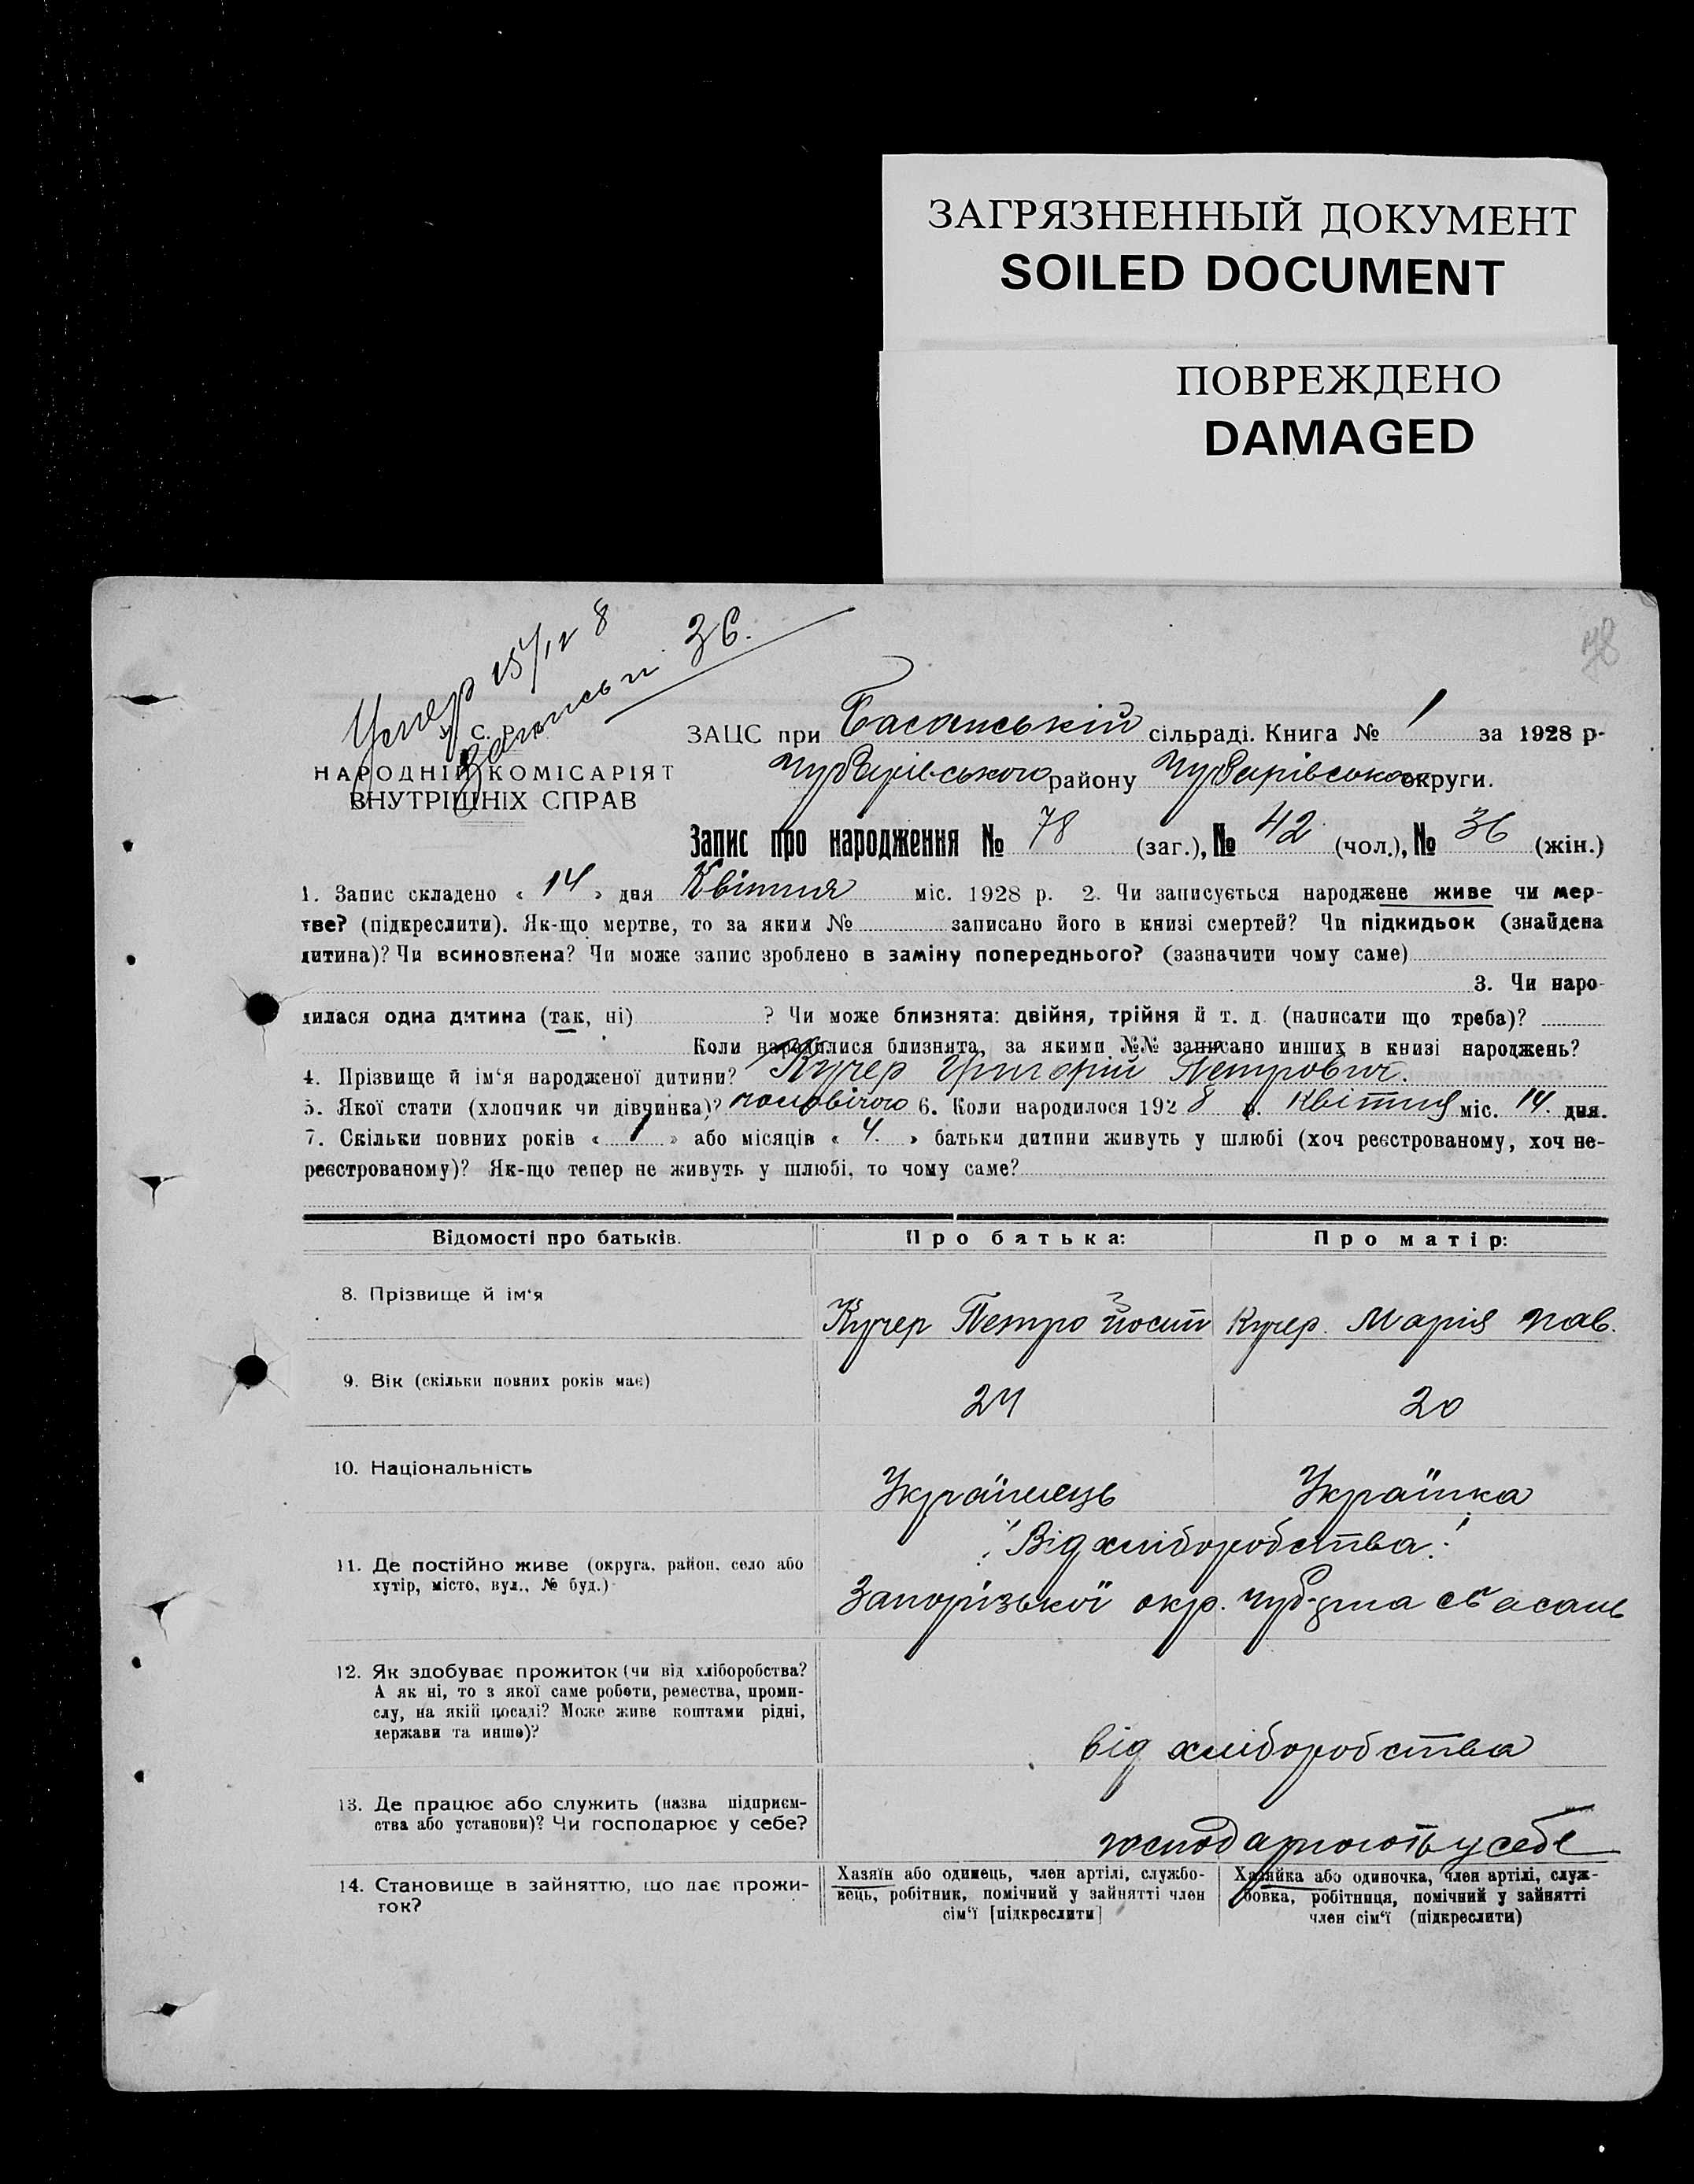 ЗАГРЯЗНЕННЫЙ ДОКУМЕНТ
SOILED DOCUMENT
ПОВРЕЖДЕНО
DAMAGED
78
Умер 15/12 8
запись п. 36.
У. С. Р. Р.
НАРОДНІЙ КОМІСАРІЯТ
ВНУТРІШНІХ СПРАВ
ЗАЦС при Басанській сільраді. Книга № 1 за 1928 р-
Чубарівського району Чубарівської округи.
Запис про народження № 78 (заг.), № 42 (чол.), № 36 (жін.)
1. Запис складено « 14 » дня Квітня міс. 1928 р. 2. Чи записується народжене живе чи мер-
тве? (підкреслити). Як-що мертве, то за яким № записано його в книзі смертей? Чи підкидьок (знайдена
дитина)? Чи всиновлена? Чи може запис зроблено в заміну попереднього? (зазначити чому саме)
3. Чи наро-
дилася одна дитина (так, ні) ? Чи може близнята: двійня, трійня й т. д. (написати що треба)?
Коли народилися близнята, за якими №№ записано инших в книзі народжень?
4. Прізвище й ім‘я народженої дитини? Кучер Григорій Петрович.
5. Якої стати (хлопчик чи дівчинка)? чоловічого 6. Коли народилося 1928 р. Квітня міс. 14. дня.
7. Скільки повних років « 1 » або місяців « 4. » батьки дитини живуть у шлюбі (хоч реєстрованому, хоч не-
реєстрованому)? Як-що тепер не живуть у шлюбі, то чому саме?
Відомості про батьків. Про батька: Про матір:
8. Прізвище й ім‘я
Кучер Петро Йосип Кучер. Марія Пав.
9. Вік (скільки повних років має)
24 20
10. Національність
Українець Українка
Від хліборобства
11. Де постійно живе (округа, район, село або
хутір, місто, вул., № буд.)
Запорізької окр. Чуб- с Басань
12. Як здобуває прожиток (чи від хліборобства?
А як ні, то з якої саме роботи, ремества, проми-
слу, на якій посаді? Може живе коштами рідні,
держави та инше)?
від хліборобства
13. Де працює або служить (назва підприєм-
ства або установи)? Чи господарює у себе?
господарюють у себе
14. Становище в зайняттю, що дає прожи-
ток?
Хазяїн або одинець, член артілі, службо-
вець, робітник, помічний у зайнятті член
сім‘ї [підкреслити]
Хазяйка або одиночка, член артілі, служ-
бовка, робітниця, помічний у зайнятті
член сім‘ї (підкреслити)